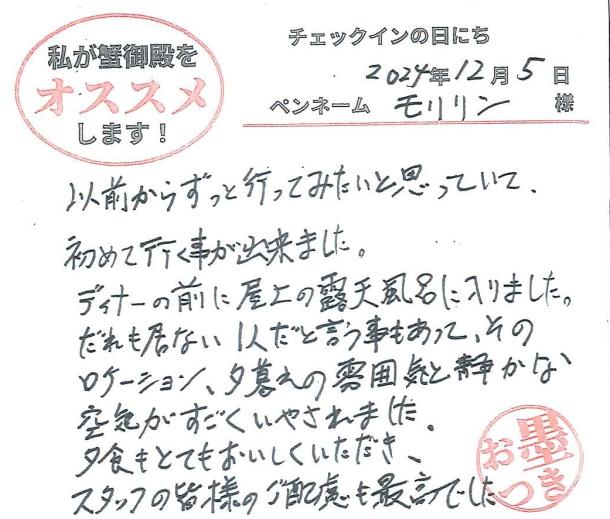 私が蟹御殿を
オススメ
します！
チェックインの日にち
2024年12月5日
ペンネーム モリリン 様
以前からずっと行ってみたいと思っていて、
初めて行く事が出来ました。
ディナーの前に屋上の露天風呂に入りました。
だれも居ない1人だと言う事もあって、その
ロケーション、夕暮れの雰囲気と静かな
空気がすごくいやされました。
夕食もとてもおいしくいただき、
スタッフの皆様のご配慮も最高でした
お墨つき